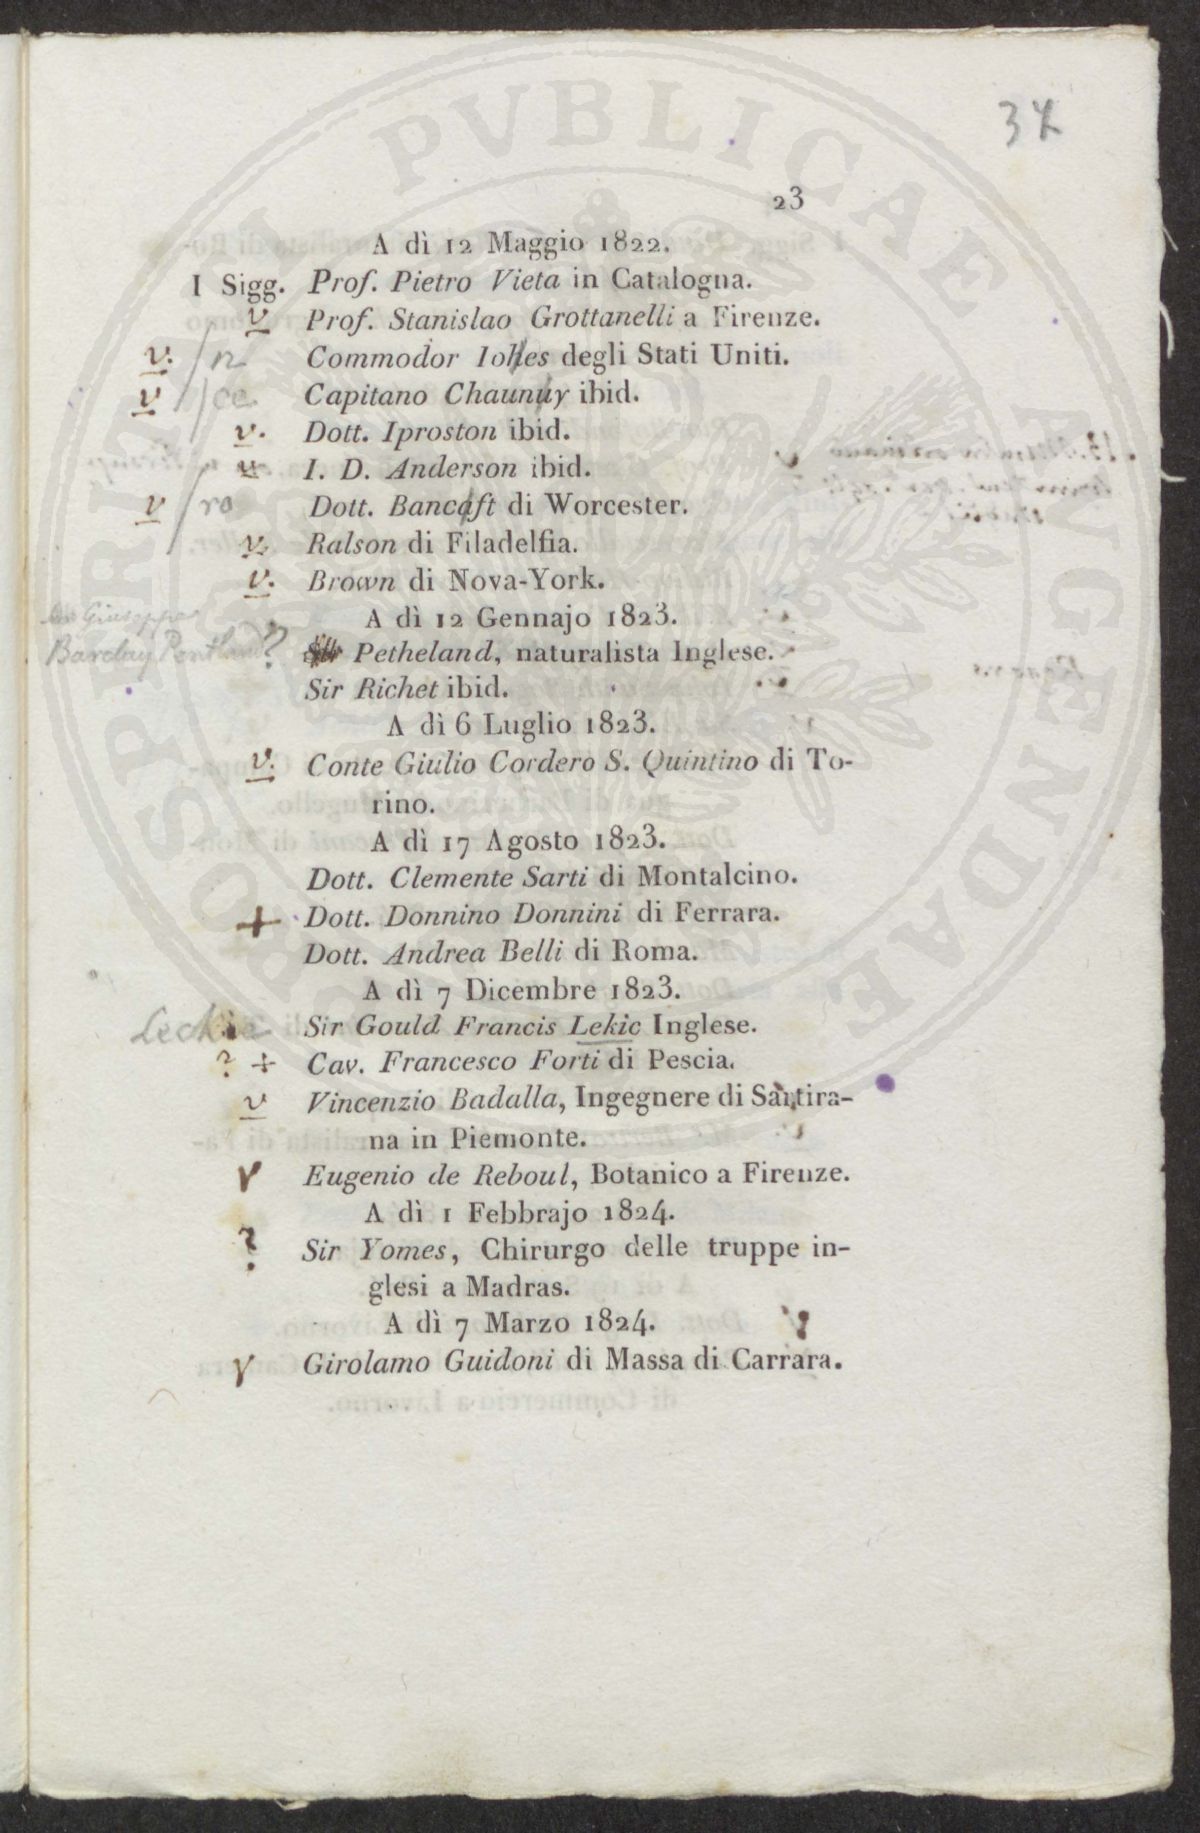 37
23
A dì 12 Maggio 1822.
I Sigg. Prof. Pietro Vieta in Catalogna.
v Prof. Stanislao Grottanelli a Firenze.
v. /n Commodor Iolles degli Stati Uniti.
v /ce Capitano Chaunuy ibid.
v. Dott. Iproston ibid.
v I. D. Anderson ibid.
v /ro Dott. Bancaft di Worcester.
v. Ralson di Filadelfia.
v. Brown di Nova-York.
A dì 12 Gennajo 1823.
Giuseppe
Barclay Pentland ? Sir Petheland, naturalista Inglese.
Sir Richet ibid.
A dì 6 Luglio 1823.
v. Conte Giulio Cordero S. Quintino di To-
rino.
A dì 17 Agosto 1823.
Dott. Clemente Sarti di Montalcino.
+ Dott. Donnino Donnini di Ferrara.
Dott. Andrea Belli di Roma.
A dì 7 Dicembre 1823.
Leckie Sir Gould Francis Lekic Inglese.
? + Cav. Francesco Forti di Pescia.
v Vincenzio Badalla, Ingegnere di Sartira-
na in Piemonte.
v Eugenio de Reboul, Botanico a Firenze.
A dì 1 Febbrajo 1824.
? Sir Yomes, Chirurgo delle truppe in-
glesi a Madras.
A dì 7 Marzo 1824.
v Girolamo Guidoni di Massa di Carrara.
PROSPERITATI PVBLICAE AVGENDAE